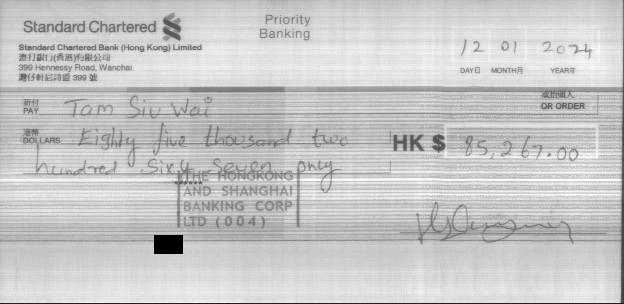 Standard Chartered
Priority
Banking
Standard Chartered Bank (Hong Kong) Limited
渣打銀行(香港)有限公司
399 Hennessy Road, Wanchai
灣仔軒尼詩道 399 號
12 01 2024
DAY日 MONTH月 YEAR年
祈付
PAY
Tam Siu Wai
或抬頭人
OR ORDER
港幣
DOLLARS
Eighty five thousand two
hundred Sixty Seven only
HK $ 85,267.00
THE HONGKONG
AND SHANGHAI
BANKING CORP
LTD (004)